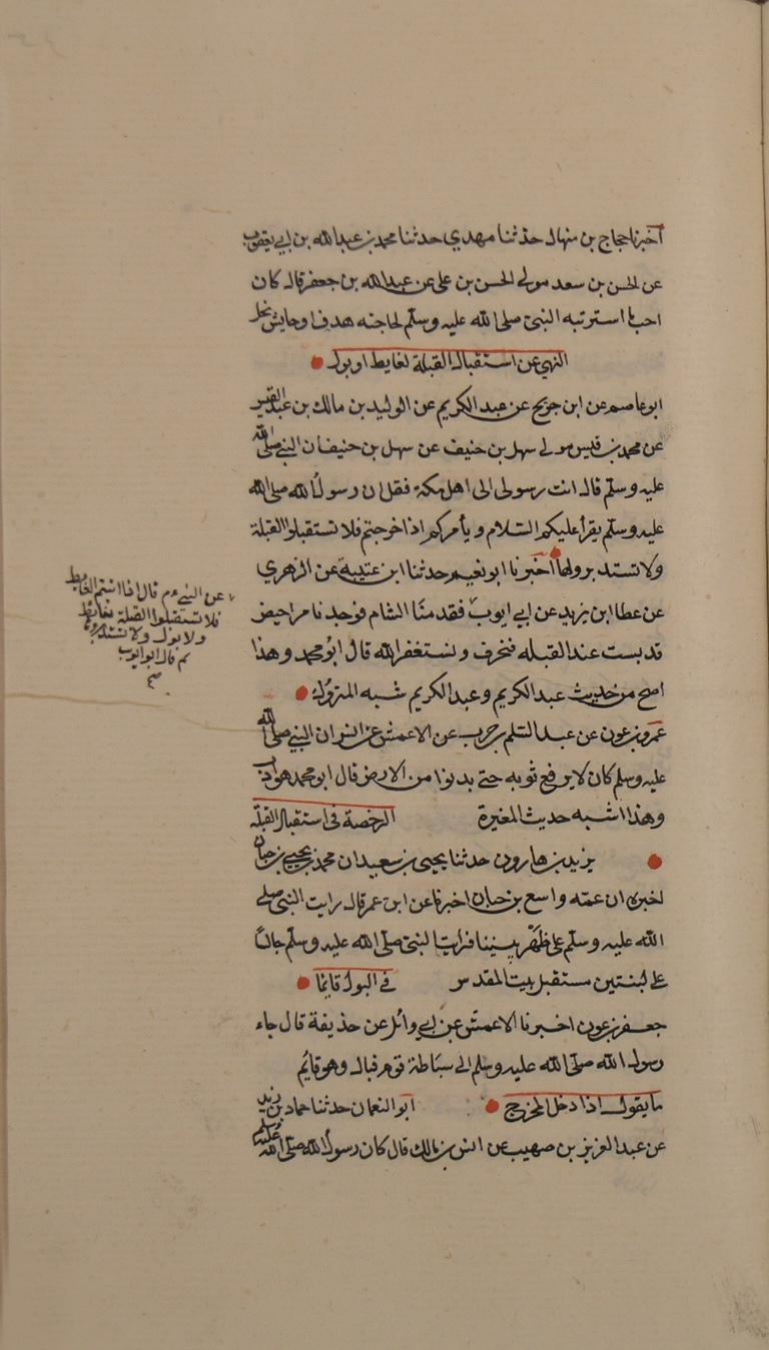 أخبرنا حجاج بن منهال حدثنا مهدي حدثنا محمد بن عبد الله بن ابي يعقوب
عن الحسن بن سعد مولى الحسن بن علي عن عبد الله بن جعفر قال كان
احب ما استتر به النبي صلى الله عليه وسلم لحاجته هدف او حايش نخل
النهي عن استقبال القبلة لغايط او بول
ابو عاصم عن ابن جريج عن عبد الكريم عن الوليد بن مالك بن عبد القيس
عن محمد بن قيس مولى سهل بن حنيف عن سهل بن حنيف ان النبي صلى الله
عليه وسلم قال انت رسولى الى اهل مكة فقل ان رسول الله صلى الله
عليه وسلم يقرأ عليكم السلام ويأمركم اذا خرجتم فلا تستقبلوا القبلة
ولا تستدبروها أخبرنا ابو نعيم حدثنا ابن عتيبة عن الزهري
عن عطا ابن يزيد عن ابي ايوب فقدمنا الشام فوجدنا مراحيض
قد بست عند القبله فنحرف ونستغفر الله قال ابو محمد وهذا
اصح من حديث عبد الكريم وعبد الكريم شبه المتروك
عمرو بن عون عن عبد السلم بن حرب عن الاعمش عن انس ان النبي صلى الله
عليه وسلم كان لا يرفع ثوبه حتى يدنوا من الارض قال ابو محمد هو ادب
وهذا اشبه حديث المغيرة الرخصة في استقبال القبلة
يزيد بن هارون حدثنا يحيى بن سعيد ان محمد بن يحيى بن حبان
اخبره ان عمه واسع بن حبان اخبرنا عن ابن عمر قال رايت النبي صلى
الله عليه وسلم على ظهر بيتنا فرايت النبي صلى الله عليه وسلم جالسا
على لبنتين مستقبل بيت المقدس في البول قايما
جعفر بن عون اخبرنا الاعمش عن ابي وائل عن حذيفة قال جاء
رسول الله صلى الله عليه وسلم الى سباطة قوم فبال وهو قايم
ما يقول اذا دخل المخرج ابو النعمان حدثنا حماد بن زيد
عن عبد العزيز بن صهيب عن انس بن مالك قال كان رسول الله صلى الله عليه وسلم
عن النبي ءم قال اذا اتيتم الغايط
فلا تستقبلوا القبلة بغايط
ولا بول ولا تستدبروها
ثم قال ابو ايوب
صح